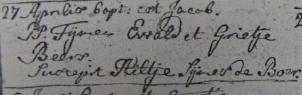 27 Aprilis bapt: est Jacob.
PP. Tijmen Ewald et Grietje
Beers.
Suscepit Hiltje Sijmens de Boer.